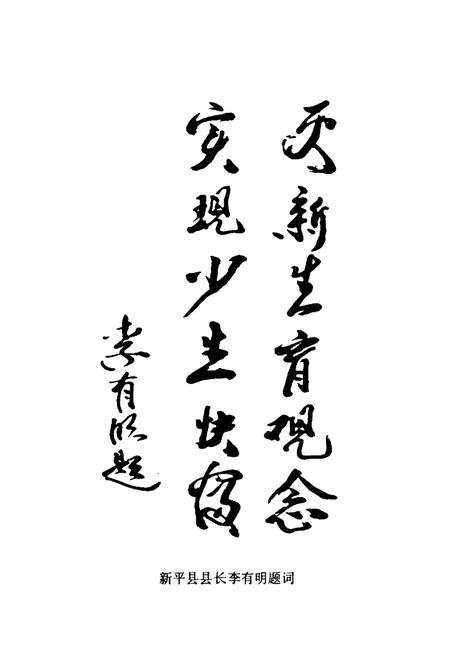 更新生育观念
实现少生快富
李有明题
新平县县长李有明题词